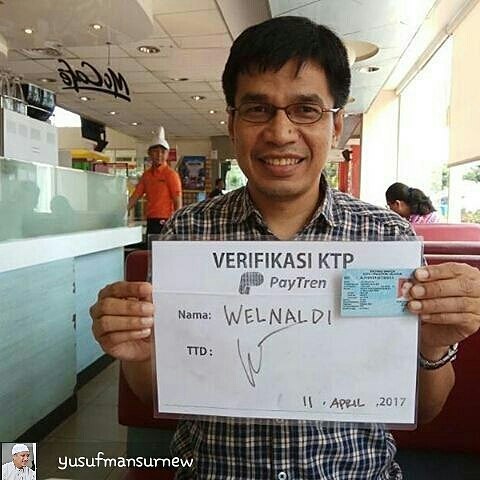 McCafé
VERIFIKASI KTP
PayTren
Nama: WELNALDI
TTD:
11 . APRIL ,2017
yusufmansurnew